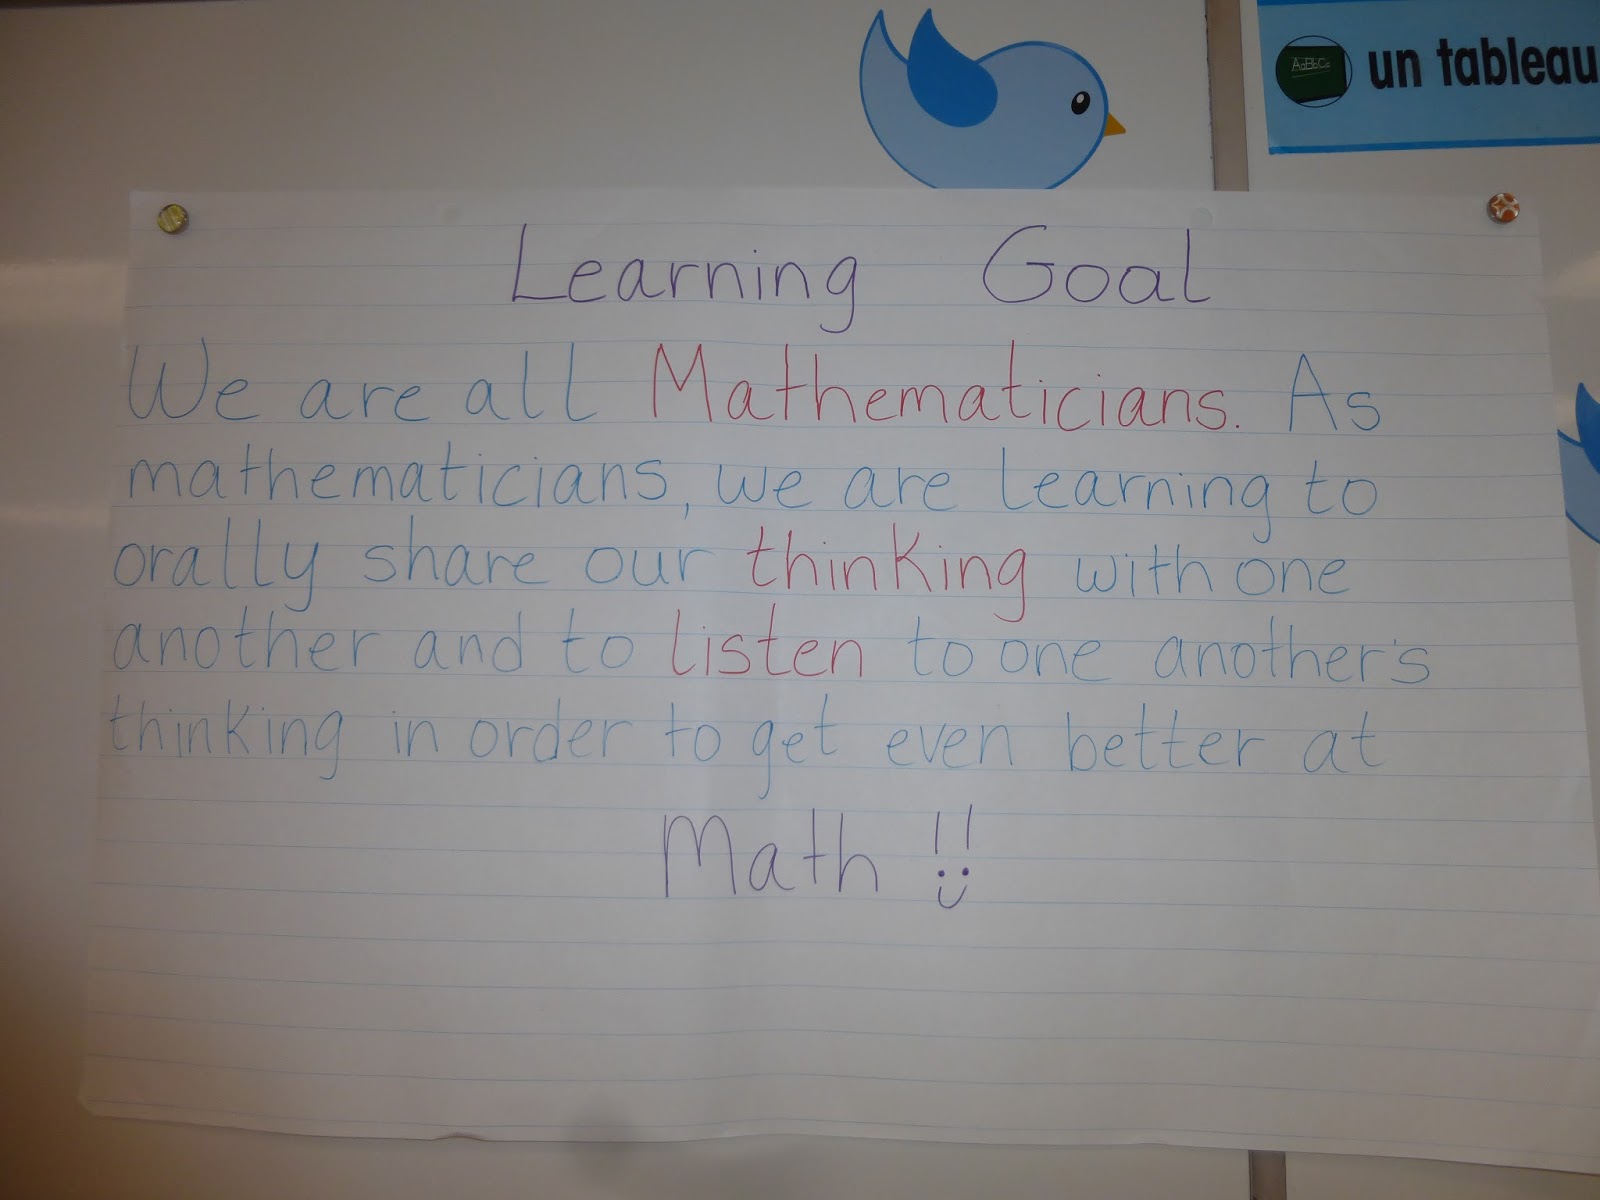 un tableau
AaBbCc
Learning Goal
We are all Mathematicians. As
mathematicians, we are learning to
orally share our thinking with one
another and to listen to one another's
thinking in order to get even better at
Math !!